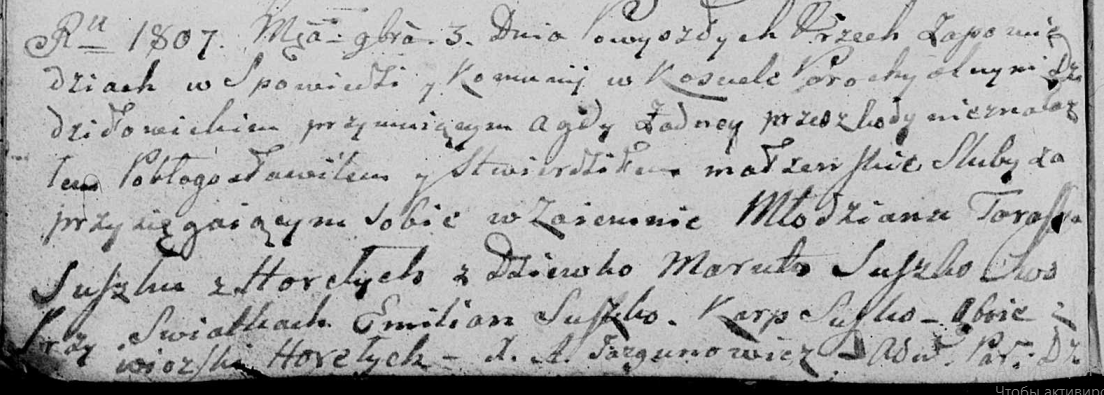 Ru 1807. Mca 9bra. 3. Dnia Powyszłych Trzech Zapowie
dziach w Spowiedzi y Komunij w Kosciele Parochyalnym Dzie
dziłowickim przymuiącym a gdy Żadney przeszkody nieznalaz
łem Pobłogosławiłem y Stwierdziłem małżenskie Sluby za
przysięgaiącym sobie wzaiemnie Młodziana Tarassa
Suszku z Horełych z Dziewko Maruto Suszko
Przy Swiatkach Emilian Suszko. Karp Suszko - Obie z
wiozski Horełych - X. A. Jazgunowicz Adm. Par: Dz.